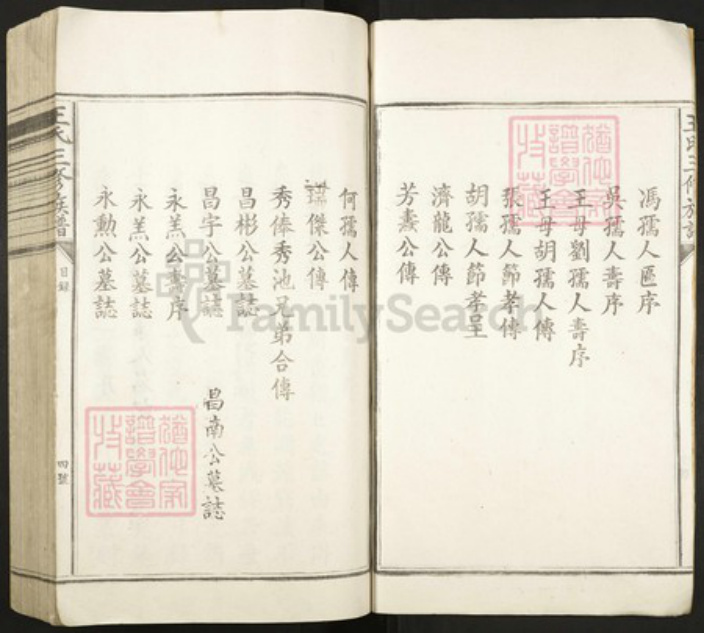 馮孺人匾序
吳孺人壽序
王母劉孺人壽序
王母胡孺人傳
張孺人節孝傳
胡孺人節孝呈
濟龍公傳
芳壽公傳
何孺人傳
傑公傳
秀俸秀池兄弟合傳
昌彬公墓誌
昌宇公墓誌 昌南公墓誌
永羔公壽序
永羔公墓誌
永勳公墓誌
王氏三修族譜
目錄
四號
FamilySearch